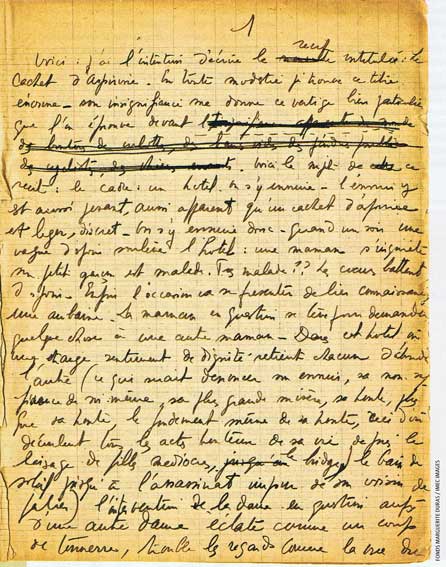 1
Voici : j'ai l'intention d'écrire le récit intitulé : le
cachet d'aspirine. En toute modestie je trouve ce titre
énorme – son insignifiance me donne ce vertige bien particulier
que l'on éprouve devant l'insignifiance apparente du monde
Voici le sujet de ce
récit : le cadre : un hôtel. On s'y ennuie – l'ennui y
est aussi pesant, aussi apparent qu'un cachet d'aspirine
est léger, discret – On s'y ennuie donc – quand un soir une
vague d'espoir soulève l'hôtel : une maman s'inquiète
son petit garçon est malade. Très malade ?? Les cœurs battent
d'espoir. Enfin l'occasion va se présenter de lier connaissance
une aubaine. La maman en question se lève pour demander
quelque chose à une autre maman – Dans cet hôtel un
étrange sentiment de dignité retient chacun d'aborder
l'autre (ce qui serait dénoncer son ennui, sa non
de soi-même, sa plus grande misère, sa honte, plus
que sa honte, le fondement même de sa honte, ceci d'où
découlent tous les actes honteux de sa vie depuis le
baisage de filles médiocres, jusqu'au le bridge, le bain de
soleil jusqu'à l'assassinat impuni de son voisin de
palier) l'intervention de la dame en question auprès
d'une autre dame éclate comme un coup
de tonnerre, trouble les regards comme la vue
FONDS MARGUERITE DURAS / IMEC IMAGES